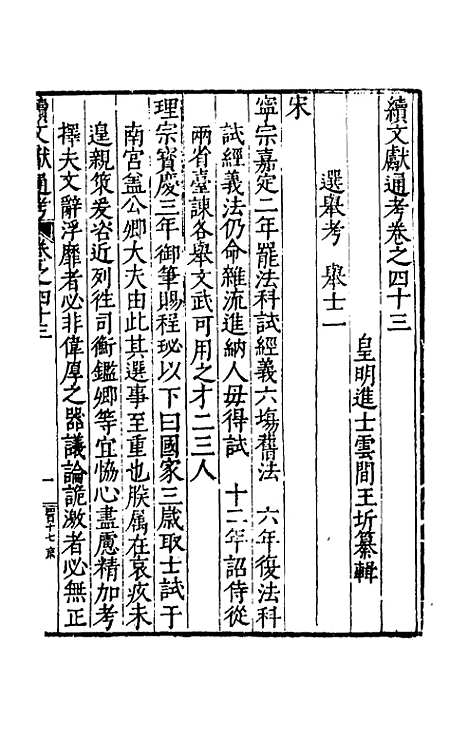 續文獻通考卷之四十三
皇明進士雲間王圻纂輯
選舉考 舉士一
宋
寧宗嘉定二年罷法科試經義六場舊法 六年復法科
試經義法仍命雜流進納人毋得試 十二年詔侍從
兩省臺諫各舉文武可用之才二三人
理宗寳慶三年御筆賜程珌以下曰國家三歲取士試于
南宮盖公卿大夫由此其選事至重也朕属在哀疚未
遑親策爰咨近列徃司衡鑑卿等宜恊心盡慮精加考
擇夫文辭浮靡者必非偉厚之器議論詭激者必無正
續文獻通考 卷之四十三
一